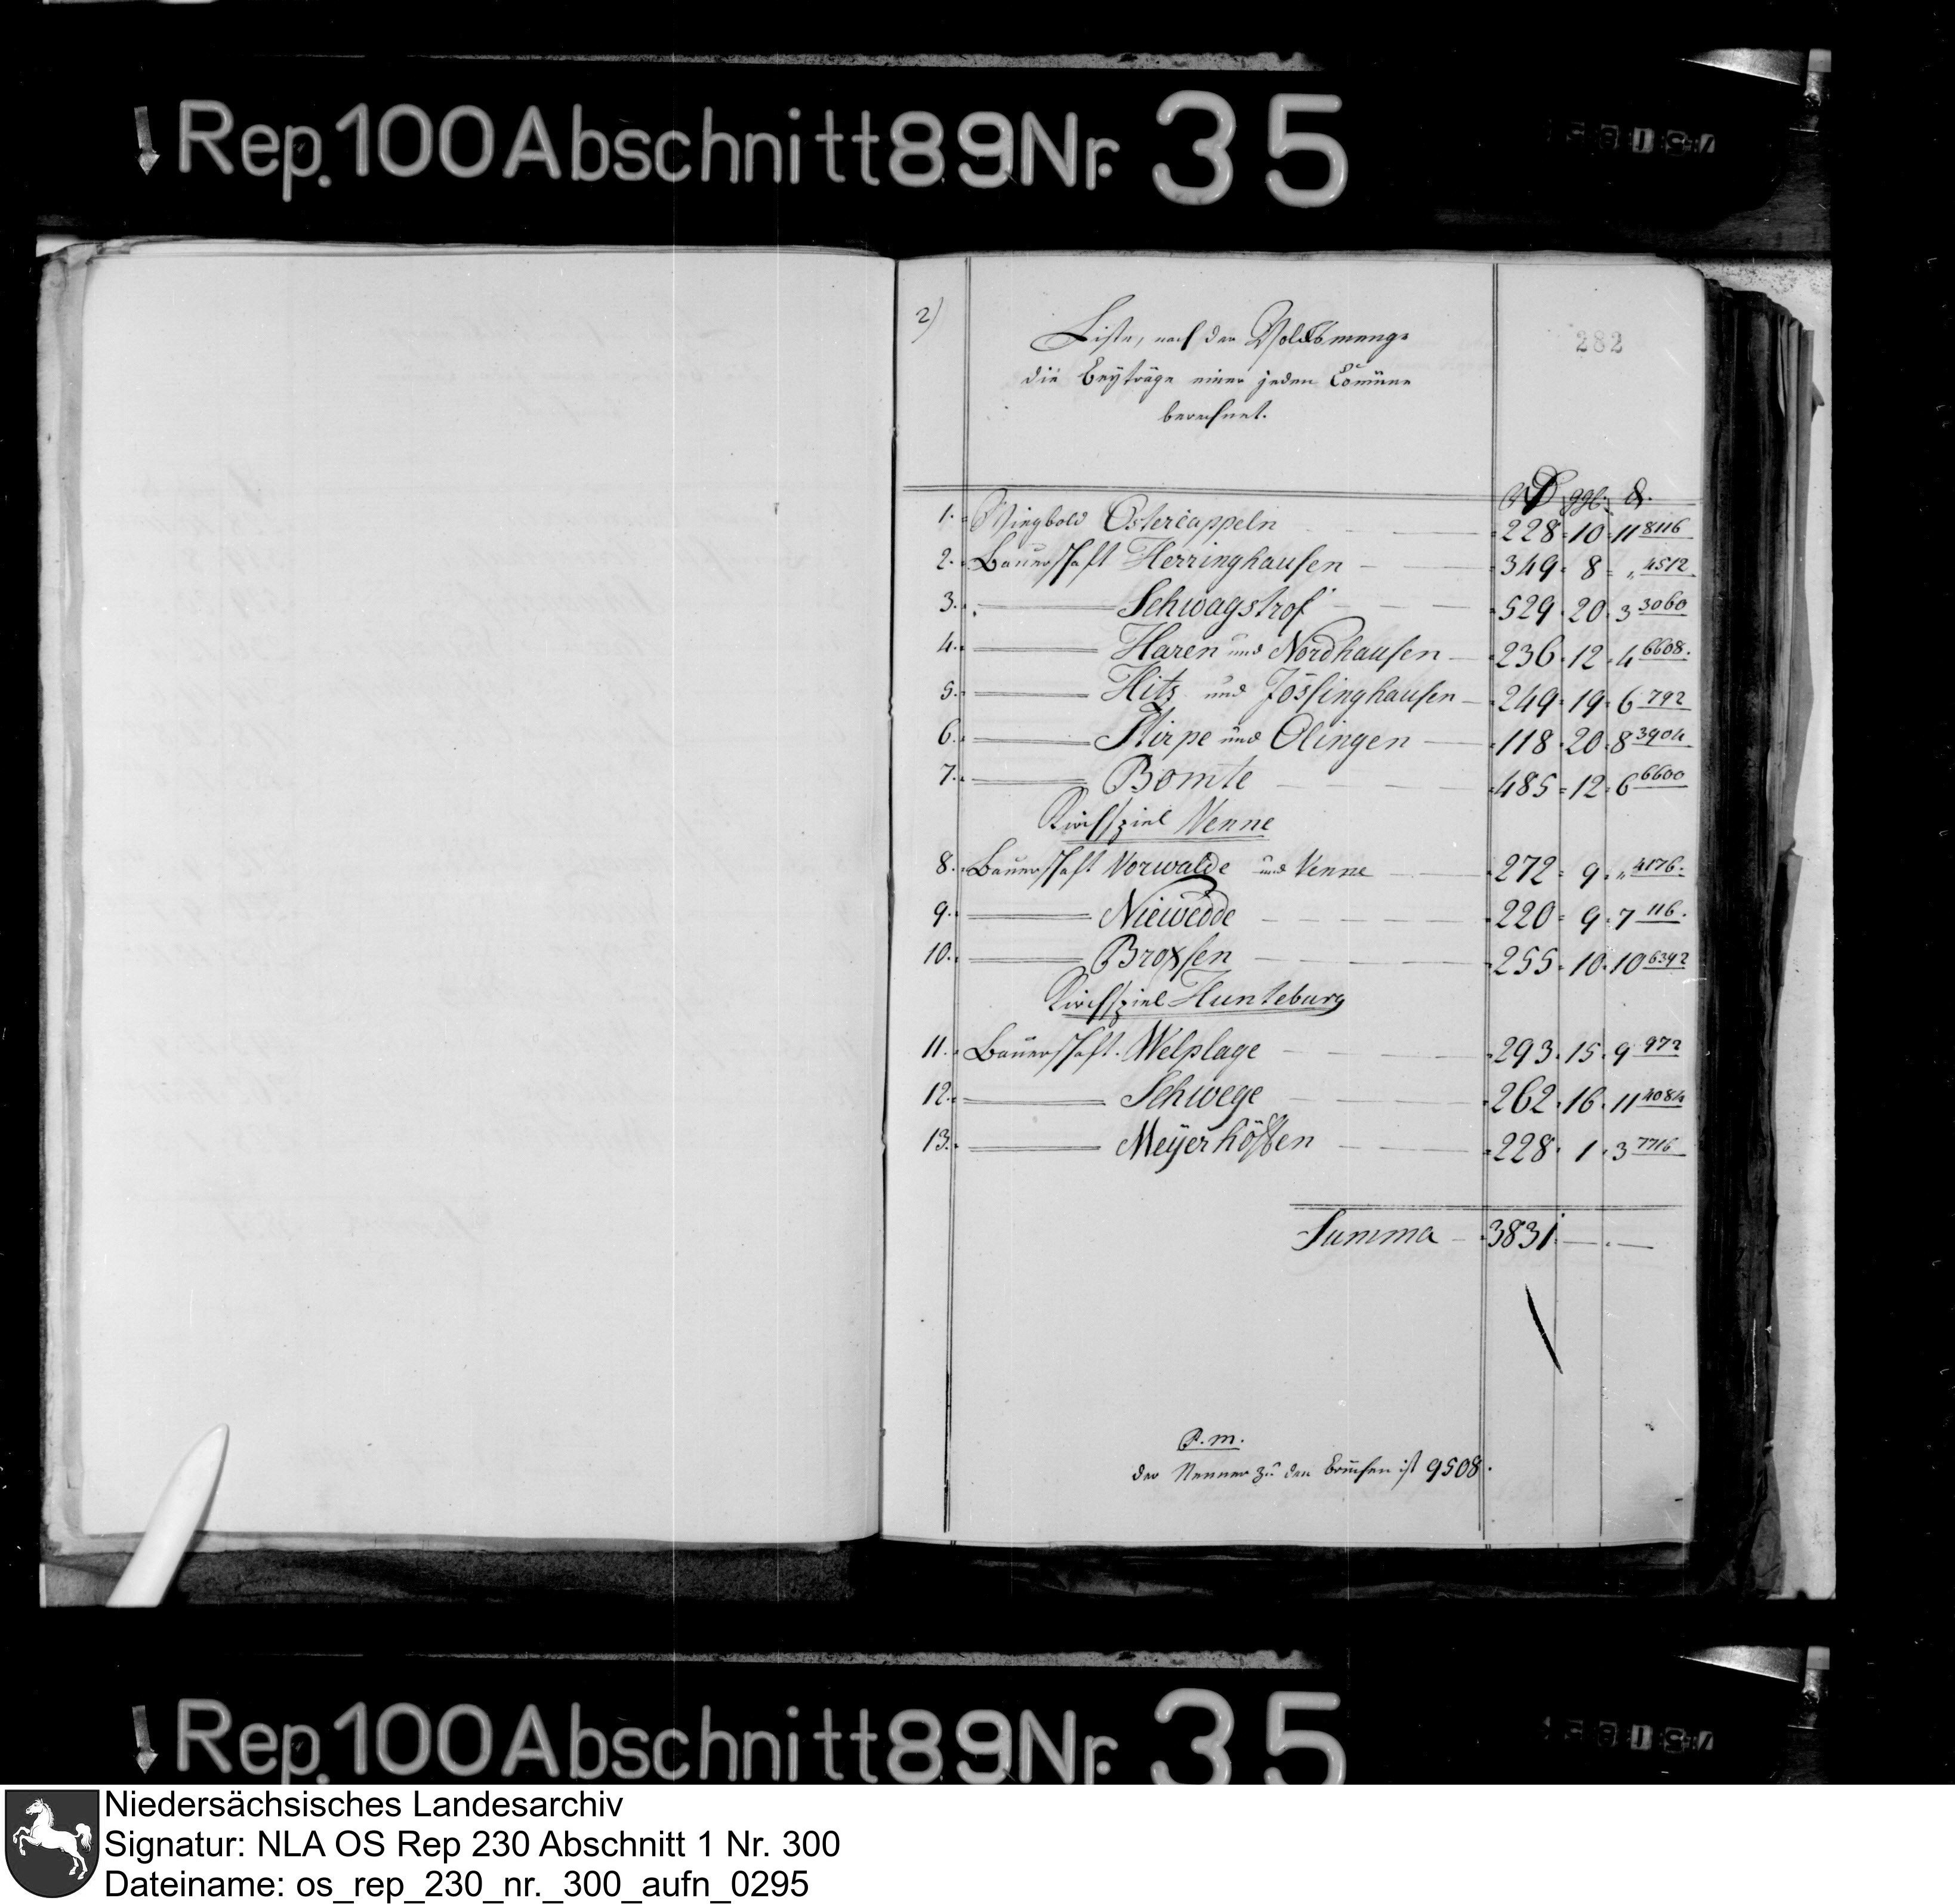 Rep. 100 Abschnitt 89 Nr. 35
2)
282
Liste, nach der Volcksmenge
die Beyträge einer jeden Comüne
berechnet.
ggl. d.
1. Wiegbold Ostercappeln 228 10 11 8116
2. Bauerschaft Herringhausen 349 8 " 4512
3. Schwagstrof 529 20 3 3060
4. Haren und Nordhausen 236 12 4 6608
5. Hitz und Jössinghausen 249 19 6 792
6. Stirpe und Olingen 118 20 8 3904
7. Bomte 485 12 6 6600
Kirchspiel Venne
8. Bauerschaft Vorwalde und Venne 272 9 " 4176
9. Niewedde 220 9 7 116
10. Broxsen 255 10 10 6392
Kirchspiel Hunteburg
11. Bauerschaft Welplage 293 15 9 972
12. Schwege 262 16 11 4084
13. Meyerhöffen 228 1 3 7716
Summa 3831
P.m.
der Nenner zu den Brüchen ist 9508.
Rep. 100 Abschnitt 89 Nr. 35
Niedersächsisches Landesarchiv
Signatur: NLA OS Rep 230 Abschnitt 1 Nr. 300
Dateiname: os_rep_230_nr._300_aufn_0295